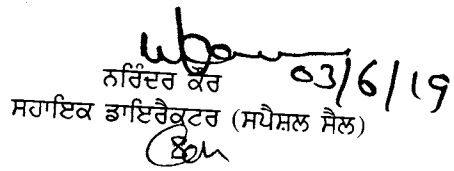 03/6/19
ਨਰਿੰਦਰ ਕੌਰ
ਸਹਾਇਕ ਡਾਇਰੈਕਟਰ (ਸਪੈਸ਼ਲ ਸੈਲ)